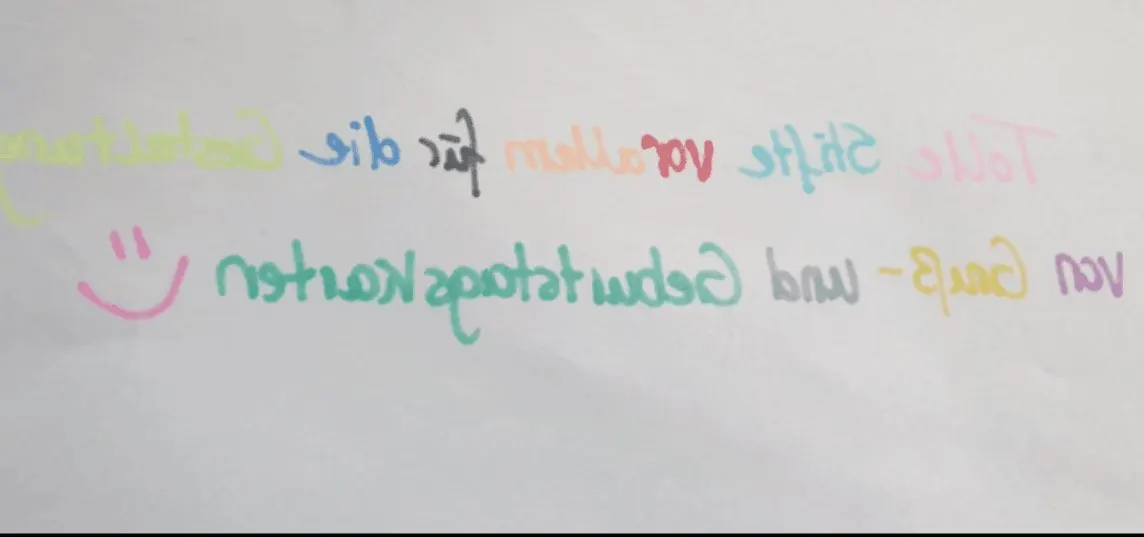 Tolle Stifte vor allem für die Gestaltung
von Gruß- und Geburtstagskarten